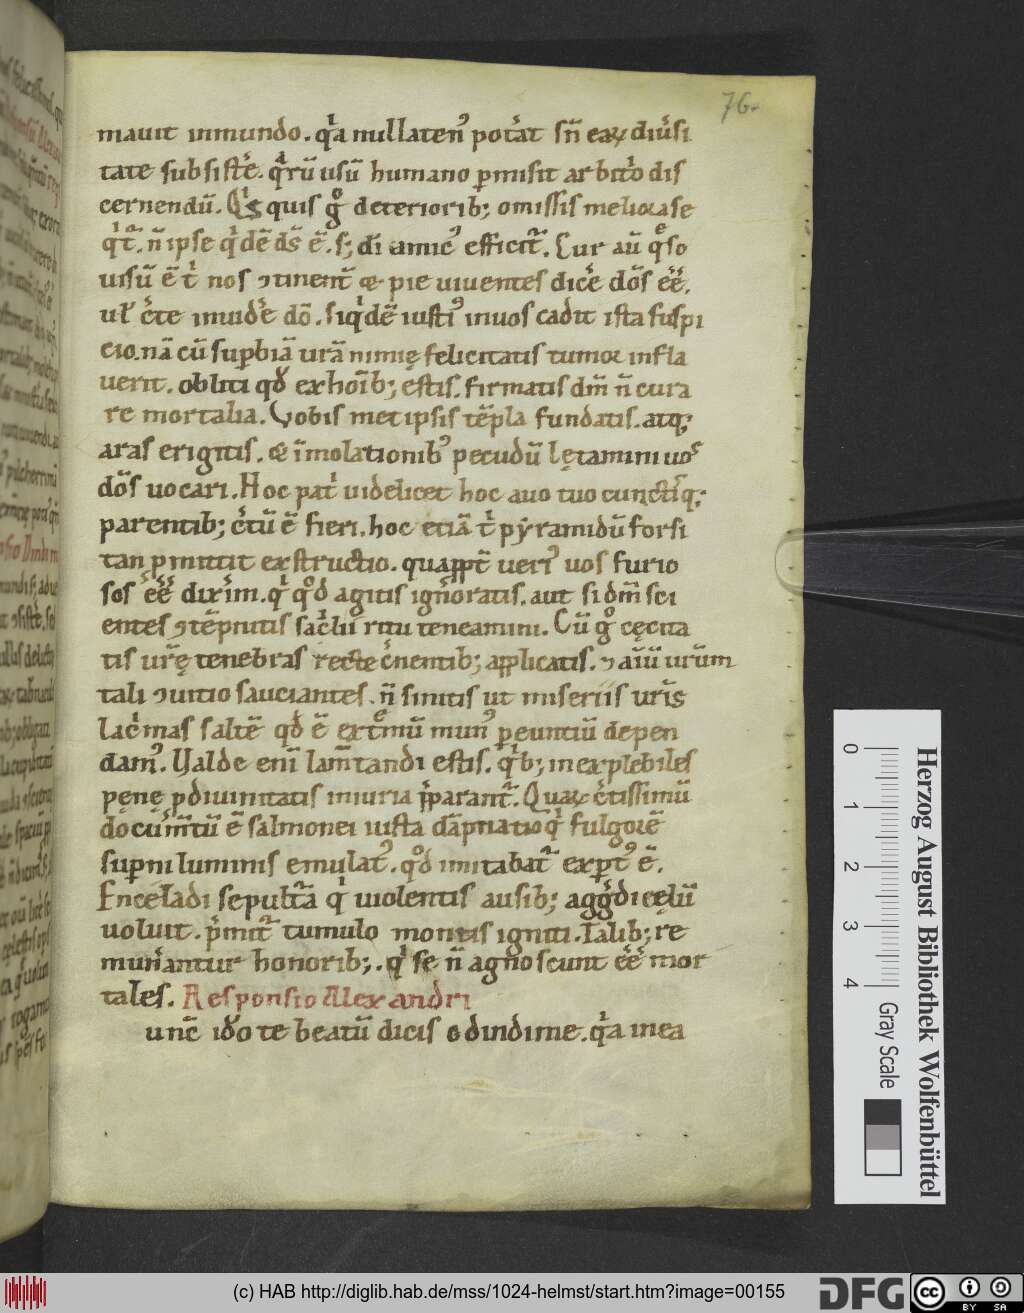 76.
mauit inmundo. q̍a nullaten᷒ pot̍at sn̄ eaꝝ diu̍si
tate subsist̄e. q̍rū usū humano ꝑmisit arbit̍o dis
cernendū. Q̍s quis g̊ deteriorib; omissis meliora se
q̍t᷑. n̄ ipse q̍dē ds̄ ē. s; dī amic᷒ efficit᷑. Cur aū q̄so
uisū ē t̍ nos ꝯtinent̄ ⁊ pie uiuentes dic̄e dōs ēē.
ul̍ c̍te inuid̄e dō. siq̍dē iusti᷒ inuos cadit ista suspi
cio. nā cū suꝑbiā urā nimię felicitatis tumor infla
uerit. obliti qđ ex hoīb; estis. firmatis dm̄ n̄ cura
re mortalia. Vobis metipsis tēpla fundatis. atq;
aras erigitis. & īmolationib᷒ pecudū lętamini uos
dōs uocari. Hoc pat̍ uidelicet hoc auo tuo cunctisq;
parentib; c̍tū ē fieri. hoc etiā t̍ pyramidū forsi
tan ꝑmittit exstructio. quaꝓpt̄ ueri᷒ uos furio
sos ēē dixi̍m. q̍ qđ agitis ignoratis. aut si dm̄ sci
entes ꝯtēpnitis sac̍lii ritu teneamini. Cū g̊ cęcita
tis urę̄ tenebras recte c̍nentib; applicatis. ⁊ aīū urūm
tali ꝯuitio sauciantes. n̄ sinitis ut miseriis uris̄
lac̍mas saltē qđ ē ext̄mū mun᷒ ꝑeuntiū depen
dam᷒. Valde enī lam̄tandi estis. q̍b; inexplebiles
pęnę ꝓ diuinitatis iniuria p̄parant᷑. Quaꝝ c̍tissimū
docum̄tū ē salmonei iusta dāpnatio q̍ fulgorē
suꝑni luminis emulat᷒. qđ imitabat᷑ expt᷒ ē.
Enceladi sepultā q̍ uiolentis ausib; agg̍di cęlū
uoluit. p̍mit᷑ tumulo montis igniti. Talib; re
mun̍antur honorib;. q̍ se n̄ agnoscunt ēē mor
tales. Responsio Alexandri
unc̄ iđo te beatū dicis o dindime. q̍a in ea
Herzog August Bibliothek Wolfenbüttel
0 1 2 3 4
Gray Scale
(c) HAB http://diglib.hab.de/mss/1024-helmst/start.htm?image=00155
DFG
cc BY SA